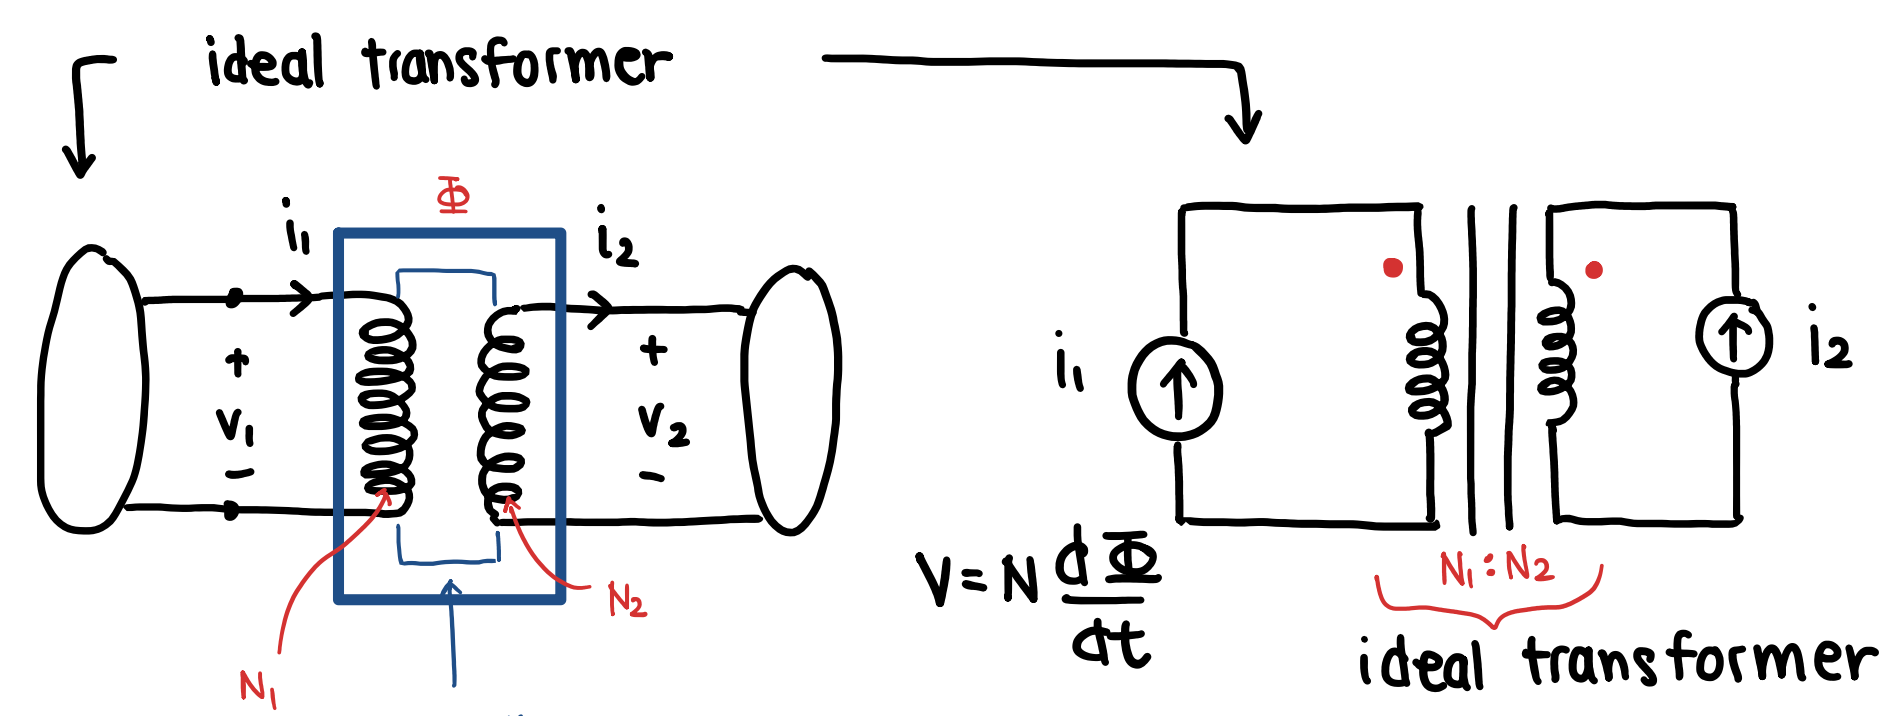 ideal transformer
Φ
i1
i2
+
v1
-
+
v2
-
N1
N2
i1
i2
V = N dΦ/dt
N1 : N2
ideal transformer